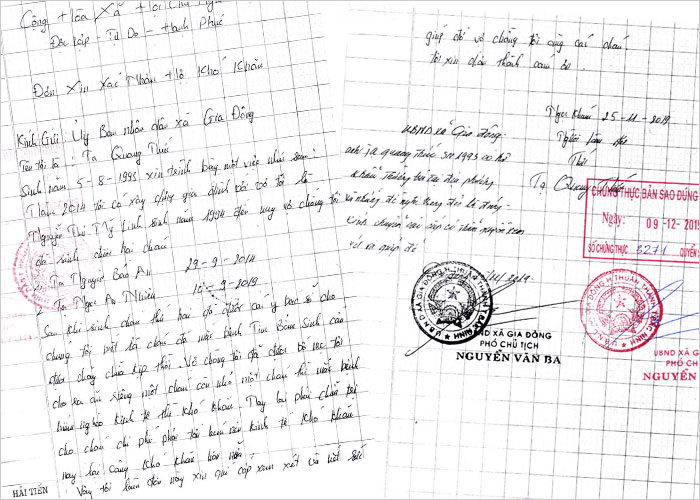 Cộng Hòa Xã Hội Chủ Nghĩa
Độc Lập - Tự Do - Hạnh Phúc
Đơn Xin Xác Nhận Hộ Khó Khăn
Kính Gửi: Ủy Ban nhân dân xã Gia Đông
Tên tôi là: Tạ Quang Thức
Sinh năm 5-8-1993 xin trình bày một việc như sau
Năm 2014 tôi có xây dựng gia đình với vợ tôi là
Nguyễn Thị Mỹ Linh sinh năm 1994 đến nay vợ chồng tôi
đã sinh được hai cháu
1, Tạ Nguyễn Bảo An 29-9-2014
2, Tạ Ngọc An Nhiên 10-9-2019
Sau khi sinh cháu thứ hai
chúng tôi mới là cháu đó mắc bệnh Tim Bẩm Sinh cần
được chữa kịp thời. Vợ chồng tôi đã được bố mẹ tôi
cho ra ăn riêng một cháu con nhỏ một cháu thì mắc bệnh
kinh tế thì khó khăn. Nay lại phải chữa trị
cho cháu chi phí kinh tế khó khăn
nay lại càng khó khăn hơn nữa.
Vậy tôi làm đơn này xin quý cấp xem xét và hết sức
HẢI TIẾN
giúp đỡ vợ chồng tôi cùng các cháu
tôi xin chân thành cảm ơn.
Ngọc Khám 25-11-2019
Người làm đơn
Thức
Tạ Quang Thức
UBND xã Gia Đông:
anh Tạ Quang Thức SN 1993 có hộ
khẩu thường trú tại địa phương
và những đề nghị trong đơn là đúng.
Kính chuyển các cấp có thẩm quyền xem
xét và giúp đỡ
/11/2019
U.B.N.D XÃ GIA ĐÔNG H.THUẬN THÀNH T.BẮC NINH
UBND XÃ GIA ĐÔNG
PHÓ CHỦ TỊCH
NGUYỄN VĂN BA
CHỨNG THỰC BẢN SAO ĐÚNG
Ngày: 09-12-2019
SỐ CHỨNG THỰC 3271 QUYỂN S
ĐÔNG H.THUẬN THÀNH T.BẮC NINH
UBND XÃ GIA
PHÓ CH
NGUYỄN